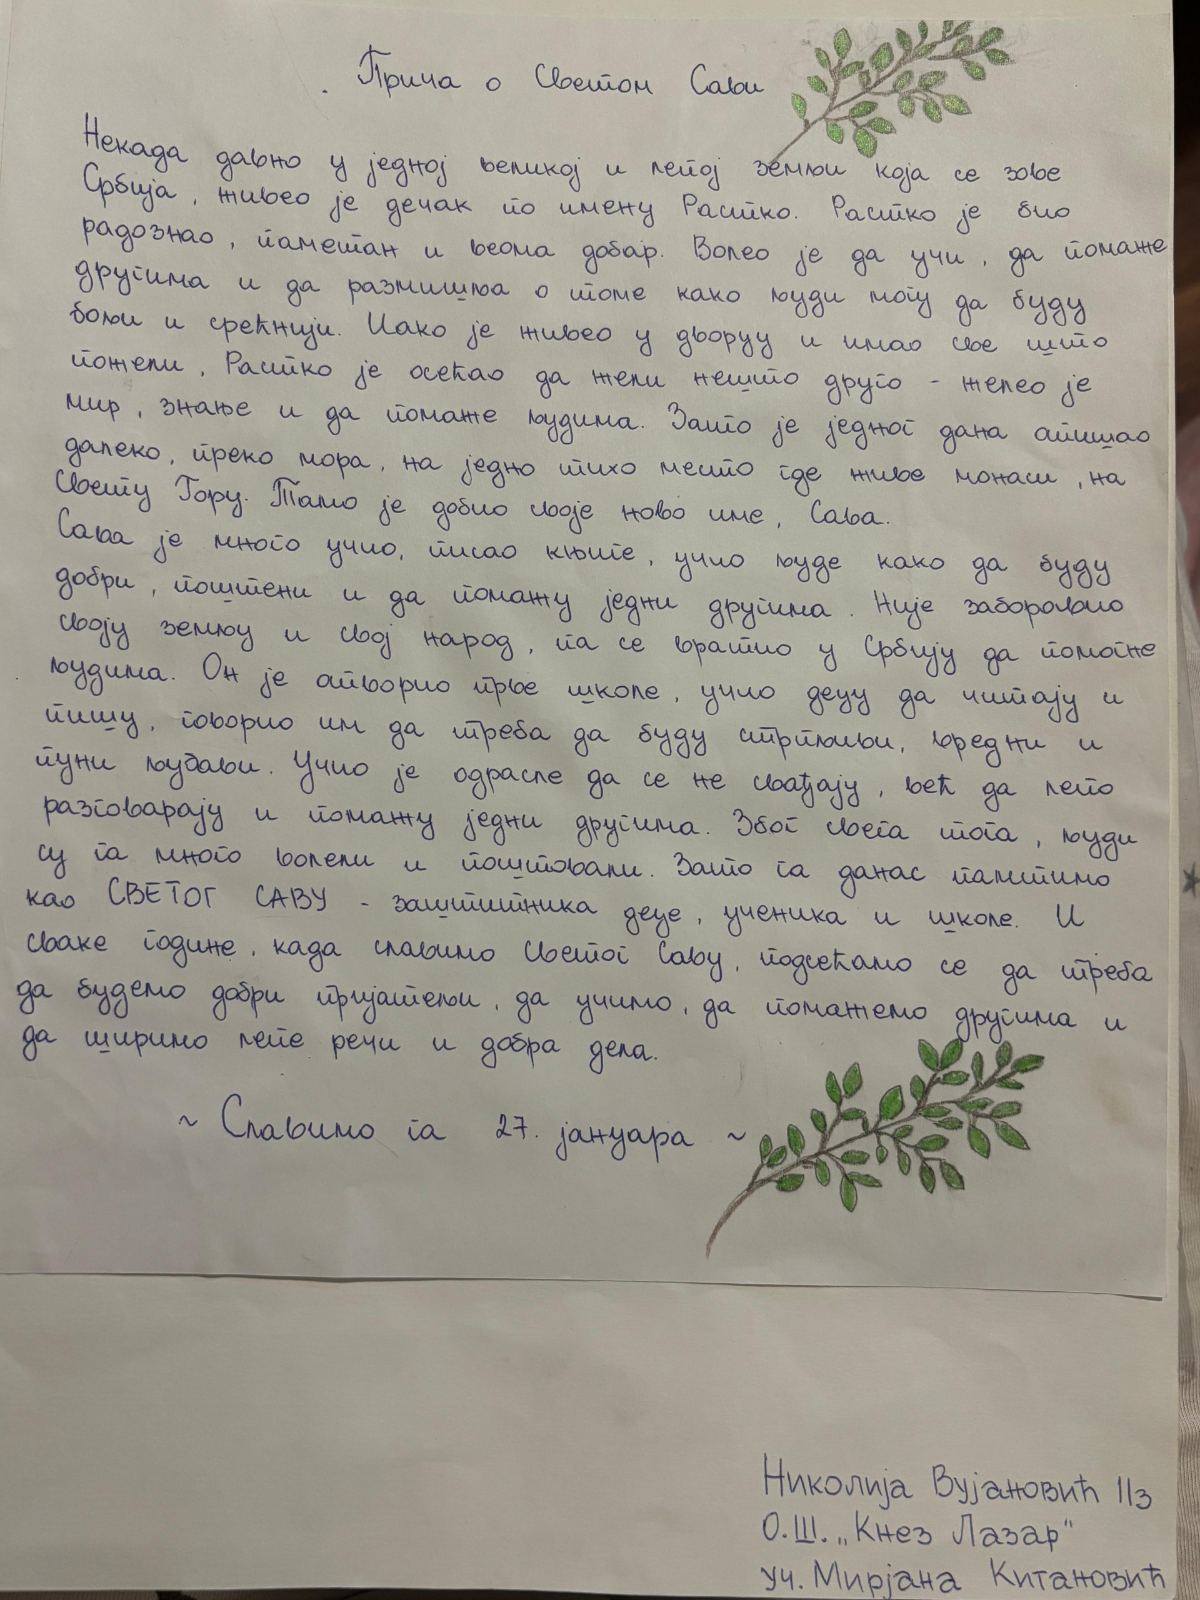 Прича о Светом Сави
Некада давно у једној великој и лепој земљи која се зове
Србија, живео је дечак по имену Растко. Растко је био
радознао, паметан и веома добар. Волео је да учи, да помаже
другима и да размишља о томе како људи могу да буду
бољи и срећнији. Иако је живео у дворцу и имао све што
пожели, Растко је осећао да жели нешто друго - желео је
мир, знање и да помаже људима. Зато је једног дана отишао
далеко, преко мора, на једно тихо место где живе монаси, на
Свету Гору. Тамо је добио своје ново име, Сава.
Сава је много учио, писао књиге, учио људе како да буду
добри, поштени и да помажу једни другима. Није заборовио
своју земљу и свој народ, па се вратио у Србију да помогне
људима. Он је отворио прве школе, учио децу да читају и
пишу, говорио им да треба да буду стрпљиви, вредни и
пуни љубави. Учио је одрасле да се не свађају, већ да лепо
разговарају и помажу једни другима. Због свега тога, људи
су га много волели и поштовали. Зато га данас памтимо
као СВЕТОГ САВУ - заштитника деце, ученика и школе. И
сваке године, када славимо Светог Саву, подсећамо се да треба
да будемо добри пријатељи, да учимо, да помажемо другима и
да ширимо лепе речи и добра дела.
~ Славимо га 27. јануара ~
Николија Вујановић II3
О.Ш. „Кнез Лазар"
уч. Мирјана Китановић